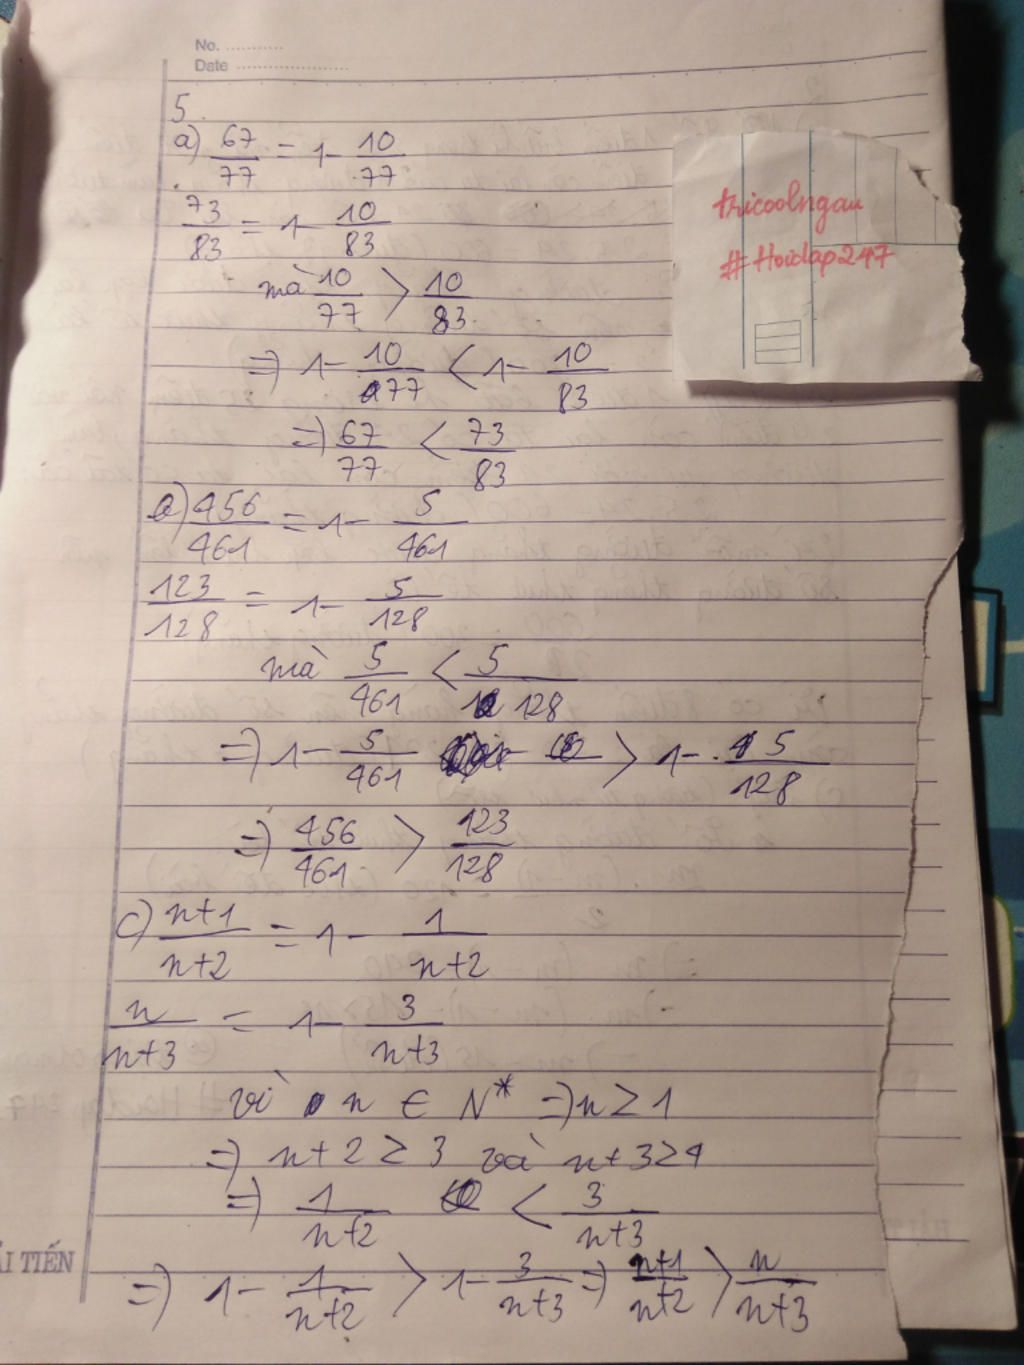 No. ............
Date ......................
5.
a) 67/77 = 1 - 10/77
73/83 = 1 - 10/83
mà 10/77 > 10/83
=> 1 - 10/77 < 1 - 10/83
=> 67/77 < 73/83
456/461 = 1 - 5/461
123/128 = 1 - 5/128
mà 5/461 < 5/128
=> 1 - 5/461 > 1 - 5/128
=> 456/461 > 123/128
c) n+1/n+2 = 1 - 1/n+2
n/n+3 = 1 - 3/n+3
vì n ∈ N* => n ≥ 1
=> n+2 ≥ 3 và n+3 ≥ 4
=> 1/n+2 < 3/n+3
=> 1 - 1/n+2 > 1 - 3/n+3 => n+1/n+2 > n/n+3
tricoolngau
#Hoidap247
TIẾN